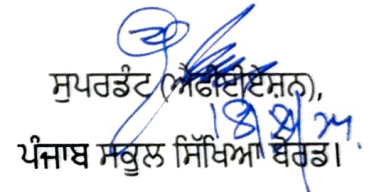 ਸੁਪਰਡੰਟ (ਐਫੀਲੀਏਸ਼ਨ),
ਪੰਜਾਬ ਸਕੂਲ ਸਿੱਖਿਆ ਬੋਰਡ।